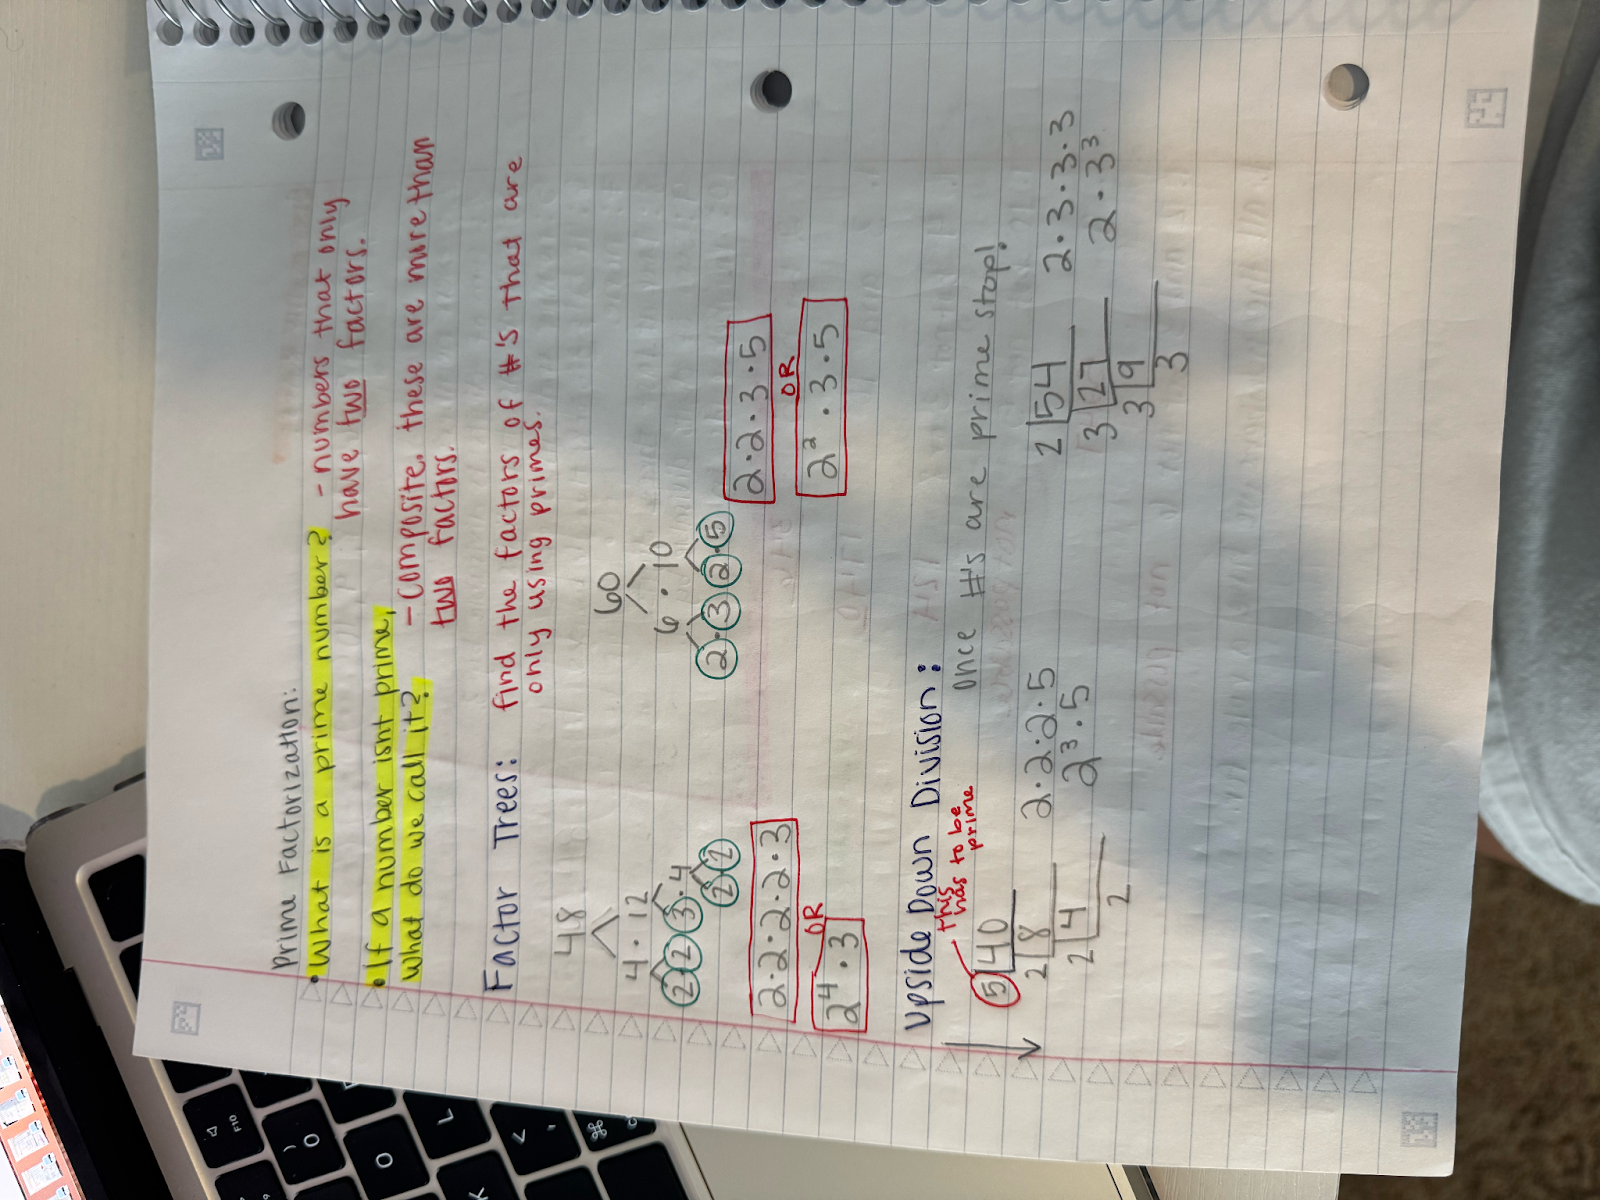 Prime Factorization:
• What is a prime number? - numbers that only
have two factors.
• If a number isnt prime,
What do we call it? - Composite, these are more than
two factors.
Factor Trees: find the factors of #'s that are
only using primes.
48
4 · 12
2 2 3 · 4
2 2
2·2·2·2·3
OR
2⁴ · 3
60
6 · 10
2 · 3 2 · 5
2·2·3·5
OR
2² · 3 · 5
Upside Down Division:
this
has to be
prime
once #'s are prime stop!
5 40
2 8
2 4
2
2·2·2·5
2³·5
2 54
3 27
3 9
3
2·3·3·3
2·3³
F10
)
O
O
L
<
,
⌘
K